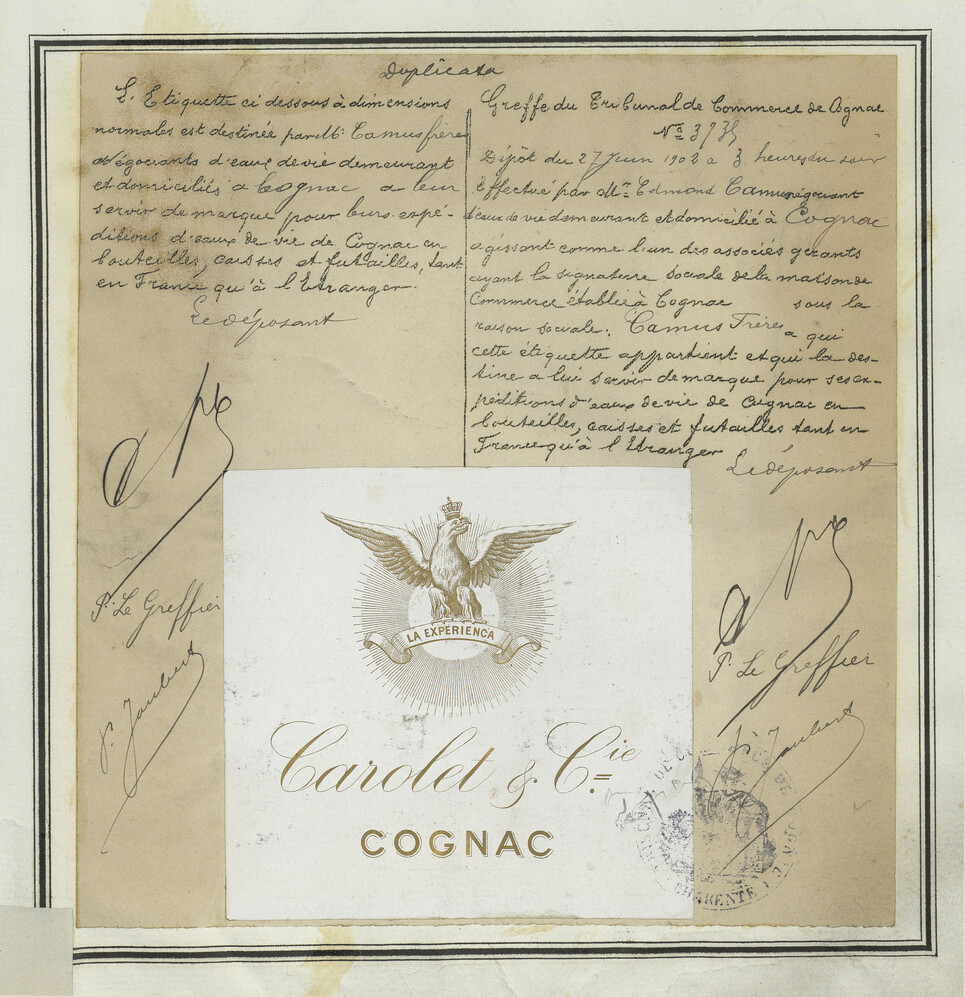 Duplicata
L'Etiquette ci dessous à dimensions
normales est destinée par Mrs Camus frères
négociants d'eaux de vie demeurant
et domiciliés à Cognac a leur
servir de marque pour leurs expé-
ditions d'eaux de vie de Cognac en
bouteilles, caisses et futailles, tant
en France qu'à l'Etranger.
Le déposant
P. Le Greffier
P. Jaubert
Greffe du Tribunal de Commerce de Cognac
No 3735
Dépôt du 27 Juin 1902 a 3 heures du soir
Effectué par Mr Edmond Camus négociant
d'eaux de vie demeurant et domicilié à Cognac
agissant comme l'un des associés gérants
ayant la signature sociale de la maison de
Commerce établie à Cognac sous la
raison sociale: Camus Frères a qui
cette étiquette appartient et qui la des-
tine a lui servir de marque pour ses ex-
péditions d'eaux de vie de Cognac en
bouteilles, caisses et futailles tant en
France qu'à l'Etranger
Le déposant
P. Le Greffier
P. Jaubert
LA EXPERIENCA
Carolet & Cie
COGNAC
CHARENTE